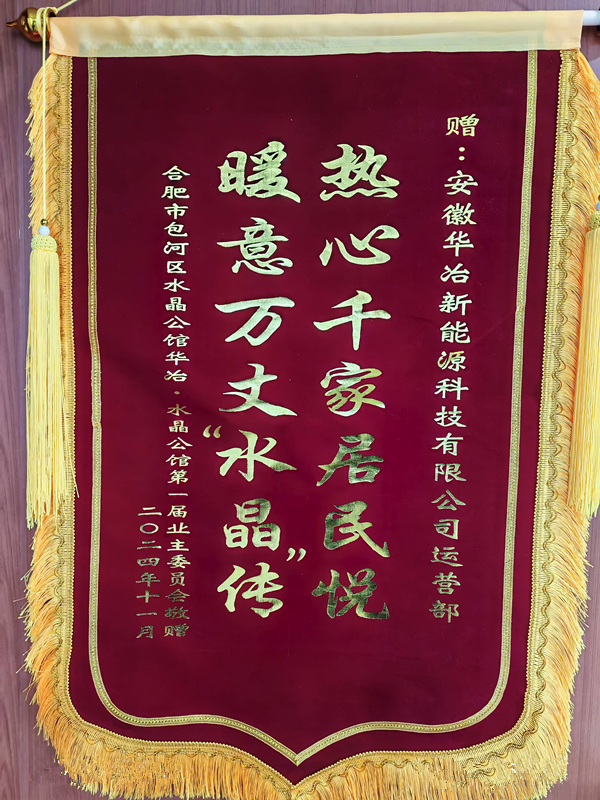 赠：安徽华冶新能源科技有限公司运营部
热心千家居民悦
暖意万丈“水晶”传
合肥市包河区水晶公馆华冶·水晶公馆第一届业主委员会敬赠
二〇二四年十一月